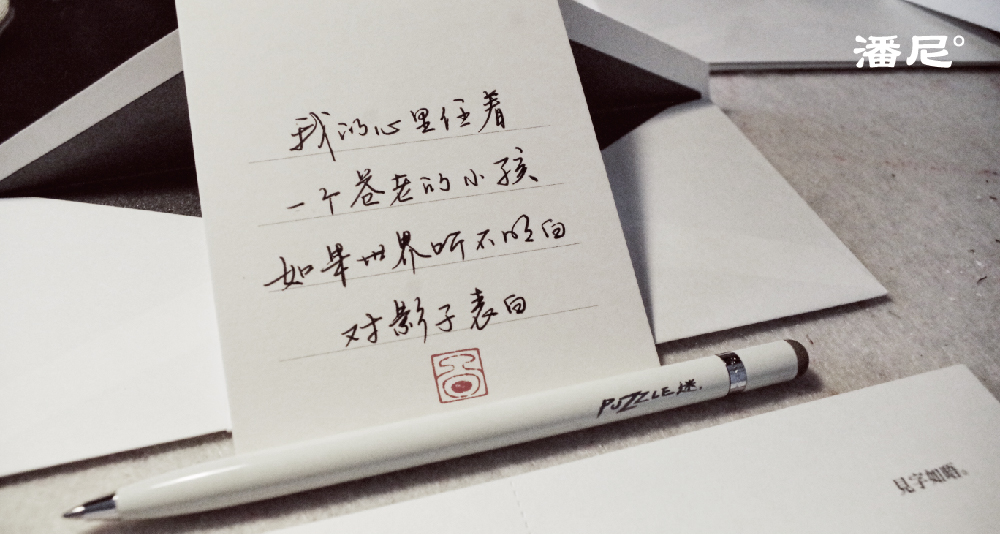 潘尼°
我的心里住着
一个苍老的小孩
如果世界听不明白
对影子表白
PUZZLE迷.
見字如晤。